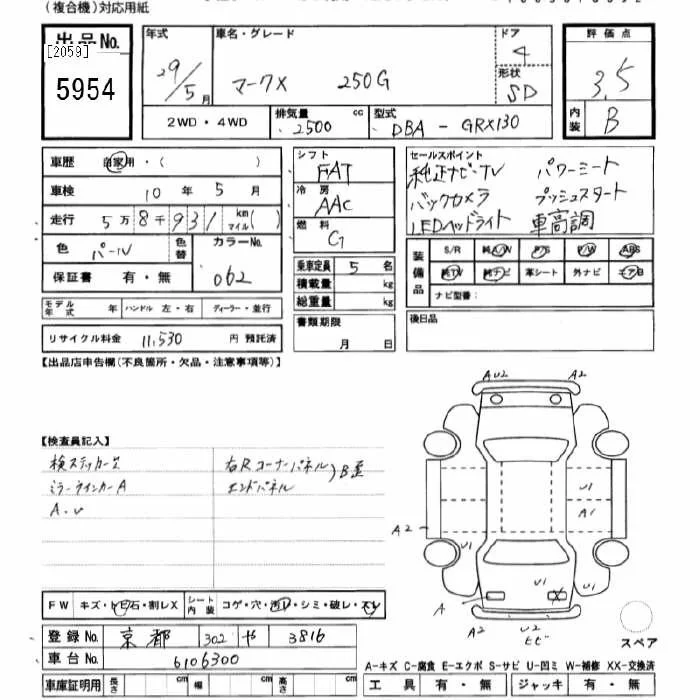 (複合機)対応用紙
出品No.
[2059]
5954
年式
29/5月
車名・グレード
マークX 250G
ドア
4
形状
SD
評価点
3.5
内装
B
2WD・4WD
排気量 cc
2500
型式
DBA - GRX130
車歴 自家用・( )
車検 10年 5月
走行 5万8千931 km マイル( )
色 パール
色替
カラーNo.
062
保証書 有・無
モデル年式 年 ハンドル 左・右 ディーラー・並行
リサイクル料金 11,530 円 預託済
シフト
FAT
冷房
AAC
燃料
G
乗車定員 5 名
積載量 kg
総重量 kg
書類期限
月 日
セールスポイント
純正ナビ・TV パワーシート
バックカメラ プッシュスタート
LEDヘッドライト 車高調
装備品
S/R 純A/W P/S P/W ABS
純TV 純ナビ 革シート 外ナビ エアB
ナビ型番:
後日品
【出品店申告欄(不良箇所・欠品・注意事項等)】
【検査員記入】
検ステッカーズ 右Rコーナーパネル
ミラーウインカーA エンドパネル
B歪
A.U
AU2 A2
U1
A1
A2
U1
U1
U1
A
X
A2
U2
ヒビ
スペア
FW キズ・トビ石・割レX シート内装 コゲ・穴・汚レ・シミ・破レ・スレ
登録No. 京都 302 や 3816
車台No. 6106300
車庫証明用 長さ cm 幅 cm 高さ cm
A-キズ C-腐食 E-エクボ S-サビ U-凹ミ W-補修 XX-交換済
工具 有・無 ジャッキ 有・無